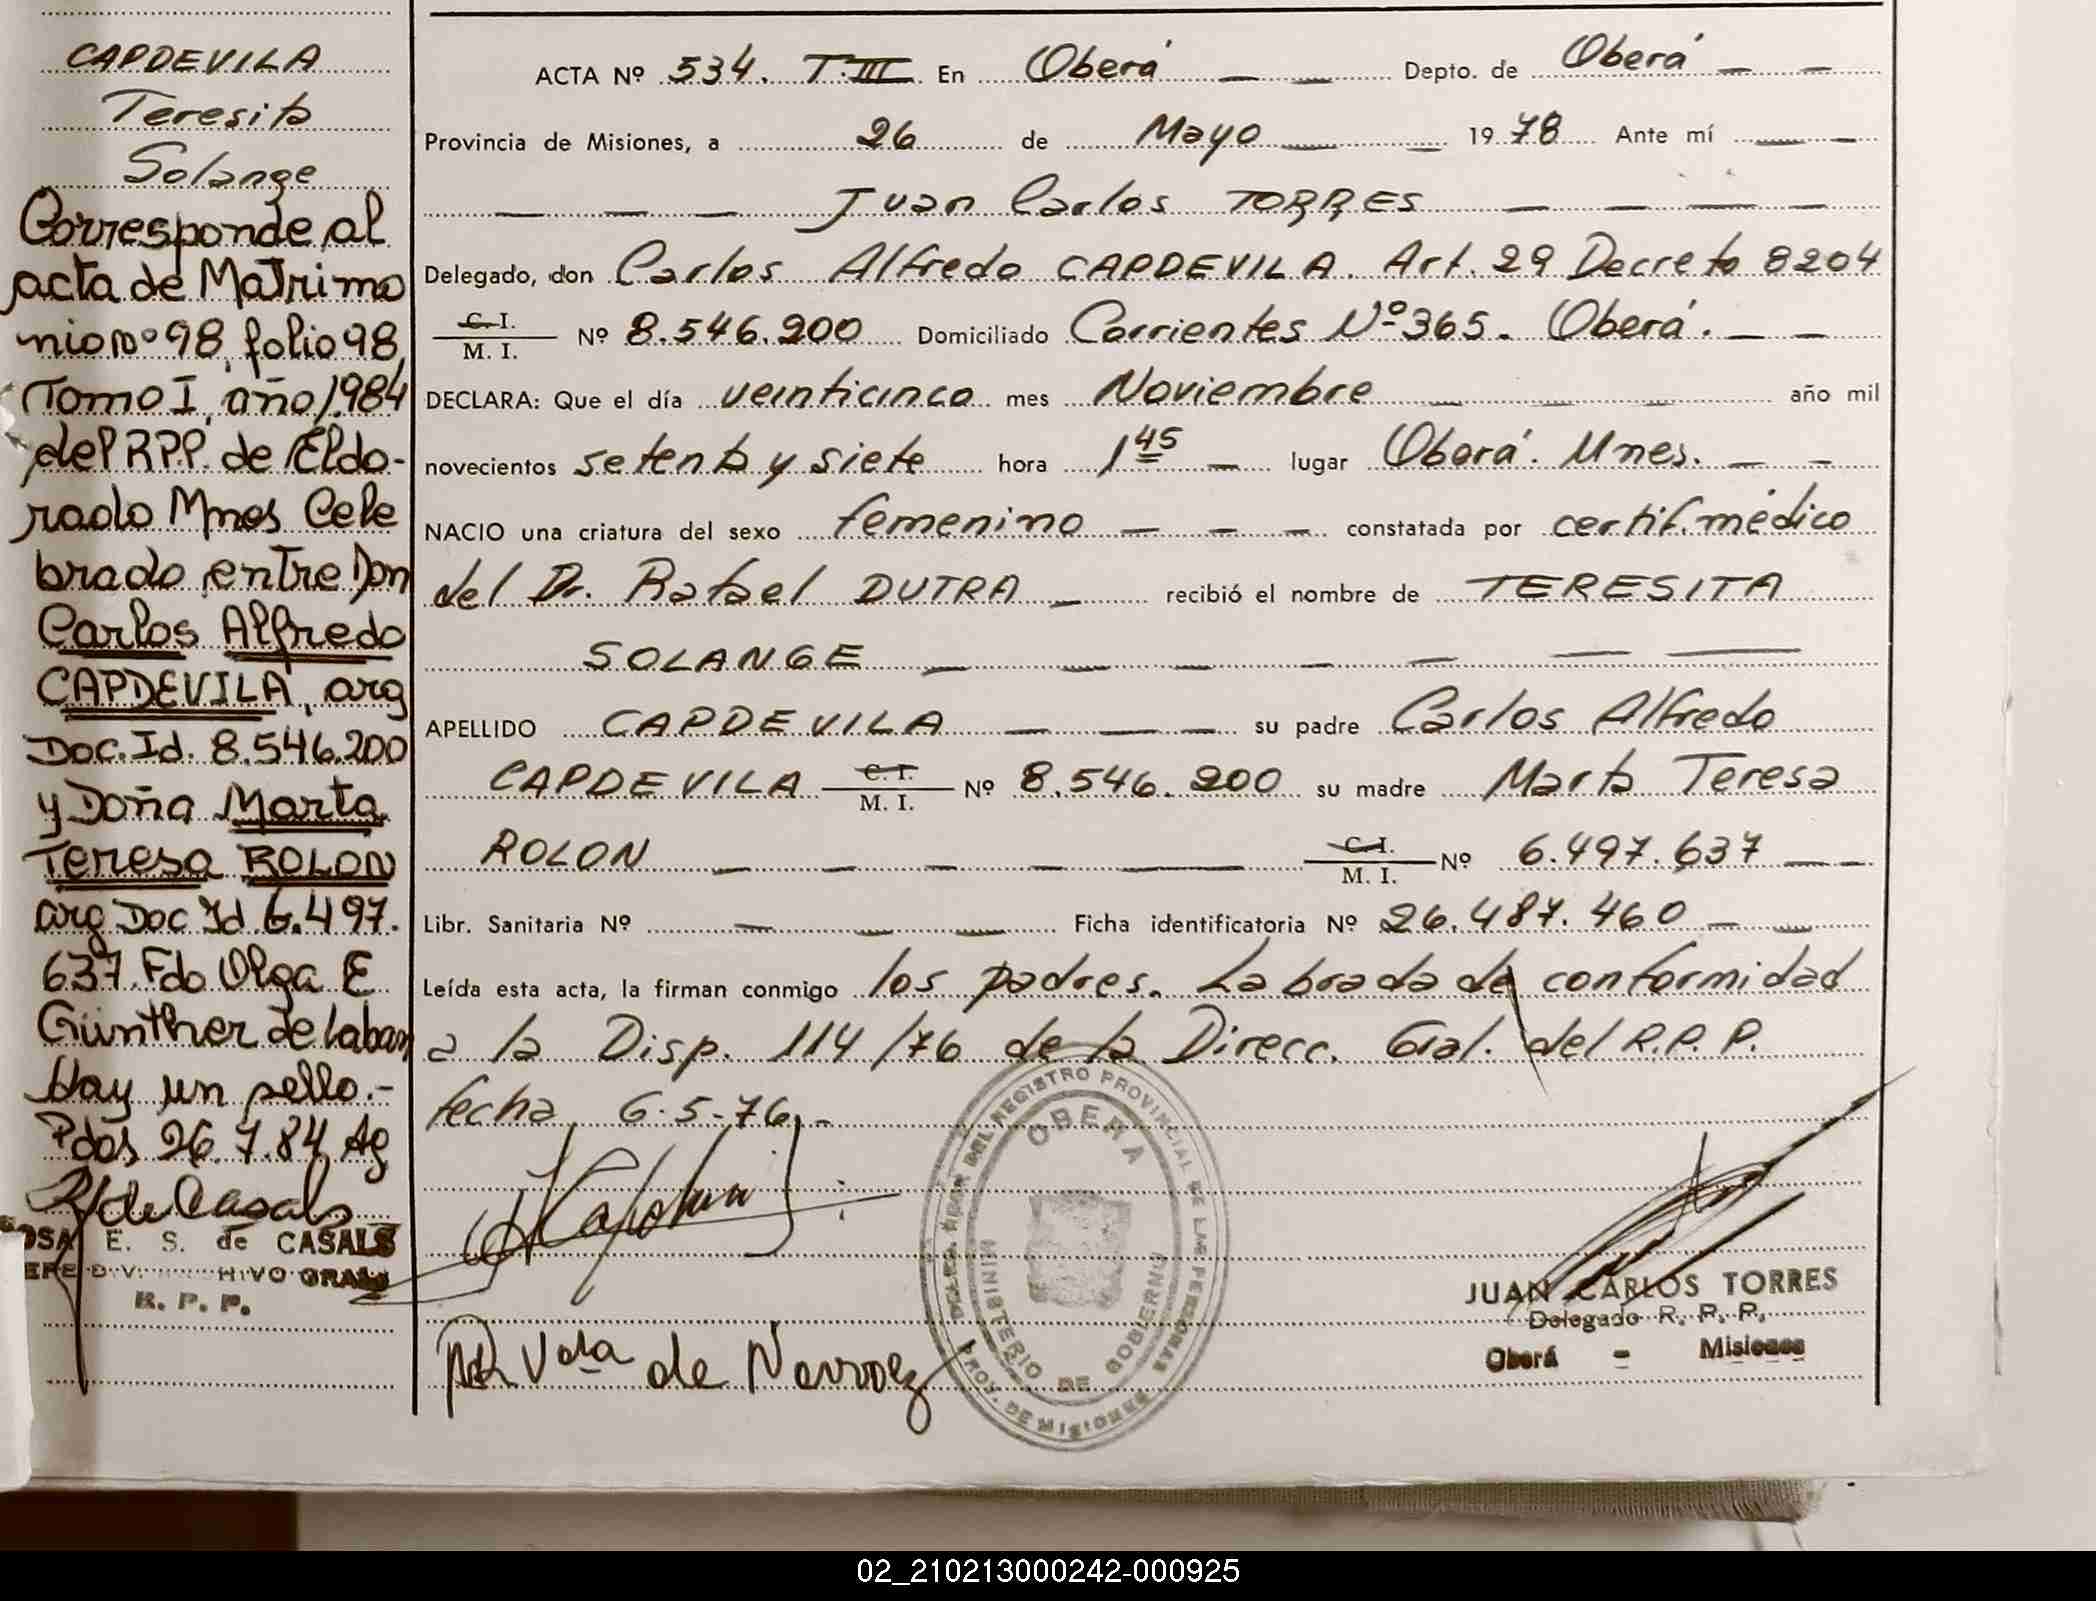 CAPDEVILA
Teresita
Solange
Corresponde al
acta de Matrimo
nio nº 98, folio 98,
Tomo I, año 1984
del R.P.P. de Eldo-
rado Mnes Cele
brado entre Don
Carlos Alfredo
CAPDEVILA, arg
Doc. Id. 8.546.200
y Doña Marta
Teresa ROLON
arg Doc Id 6.497.
637. Fdo Olga E
Günther de Laban
Hay un sello.-
Pdas 26.7.84 Ag
R de Casals
ROSA E. S. de CASALS
R. P. P.
ACTA Nº 534. T.III En Oberá — — Depto. de Oberá — —
Provincia de Misiones, a 26 de Mayo — — 19 78 Ante mí — —
— — — Juan Carlos TORRES — — — —
Delegado, don Carlos Alfredo CAPDEVILA. Art. 29 Decreto 8204
C. I.
M. I. Nº 8.546.200 Domiciliado Corrientes Nº 365. Oberá. — —
DECLARA: Que el día veinticinco mes Noviembre — — — año mil
novecientos setenta y siete hora 1 45 — lugar Oberá. Mnes. — —
NACIO una criatura del sexo femenino — — — constatada por certif. médico
del Dr. Rafael DUTRA — recibió el nombre de TERESITA
SOLANGE — — — — — — —
APELLIDO CAPDEVILA — — — su padre Carlos Alfredo
CAPDEVILA C. I.
M. I. Nº 8.546.200 su madre Marta Teresa
ROLON — — — — — C. I.
M. I. Nº 6.497.637 — —
Libr. Sanitaria Nº — — — Ficha identificatoria Nº 26.487.460 — —
Leída esta acta, la firman conmigo los padres. Labrada de conformidad
a la Disp. 114/76 de la Direcc. Gral. del R.P.P.
fecha 6-5-76.-
de
DEL REGISTRO PROVINCIAL DE LAS PERSONAS
PROV. DE MISIONES
OBERA
MINISTERIO DE GOBIERNO
JUAN CARLOS TORRES
Delegado R. P. P.
Oberá - Misiones
02_210213000242-000925